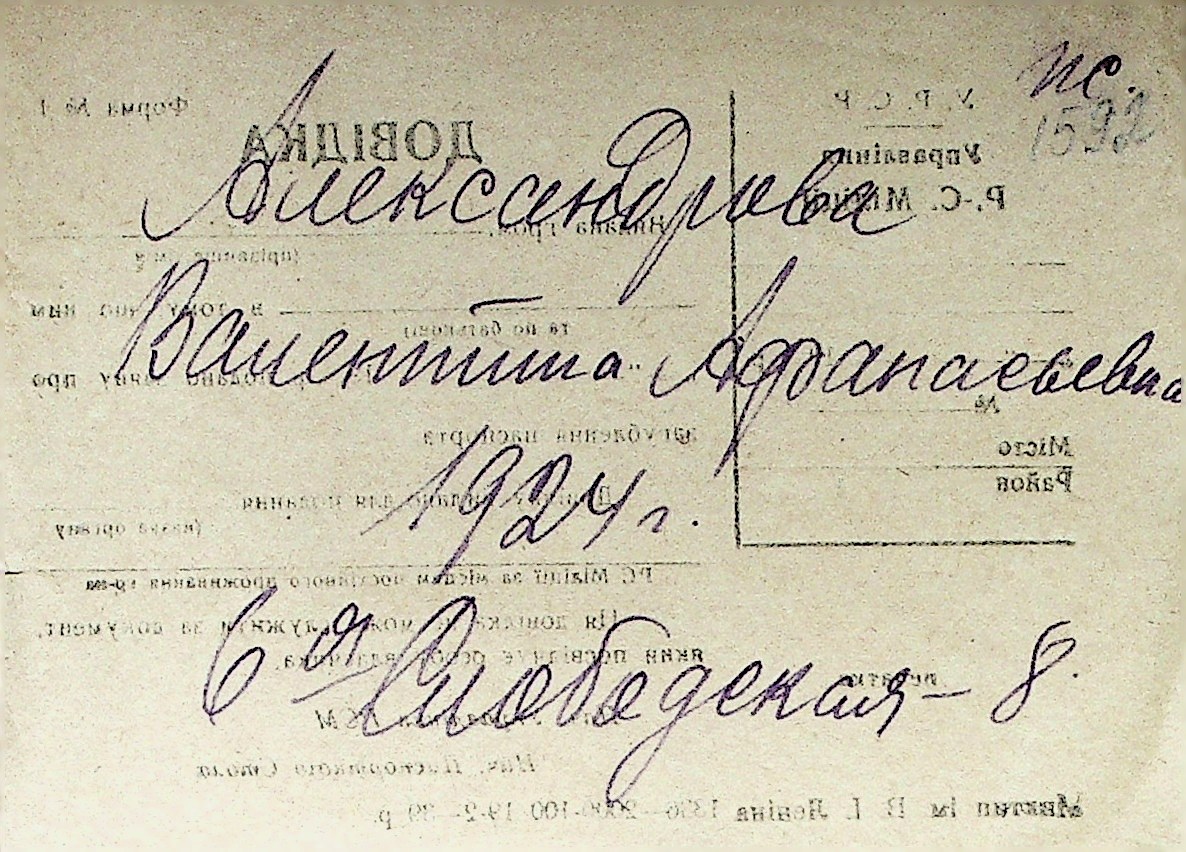 пс.
1592
Александрова
Валентина Афанасьевна
1924 г.
6ая Слободская - 8.
Форма № 1
ДОВІДКА
У. Р. С. Р
Управління
Р.-С. Міліції
Видана гром.
та по батькові
про
загублення паспорта
№
Місто
Район
для подання
(назва органу
РС Міліції за місцем постійного проживання гр-на
Ця довідка не може служити за документ,
який посвідчує особу власника.
печатка
Нач. Паспортного Стола
ім В. І. Леніна 1356—2000-100 19-2-39 р.